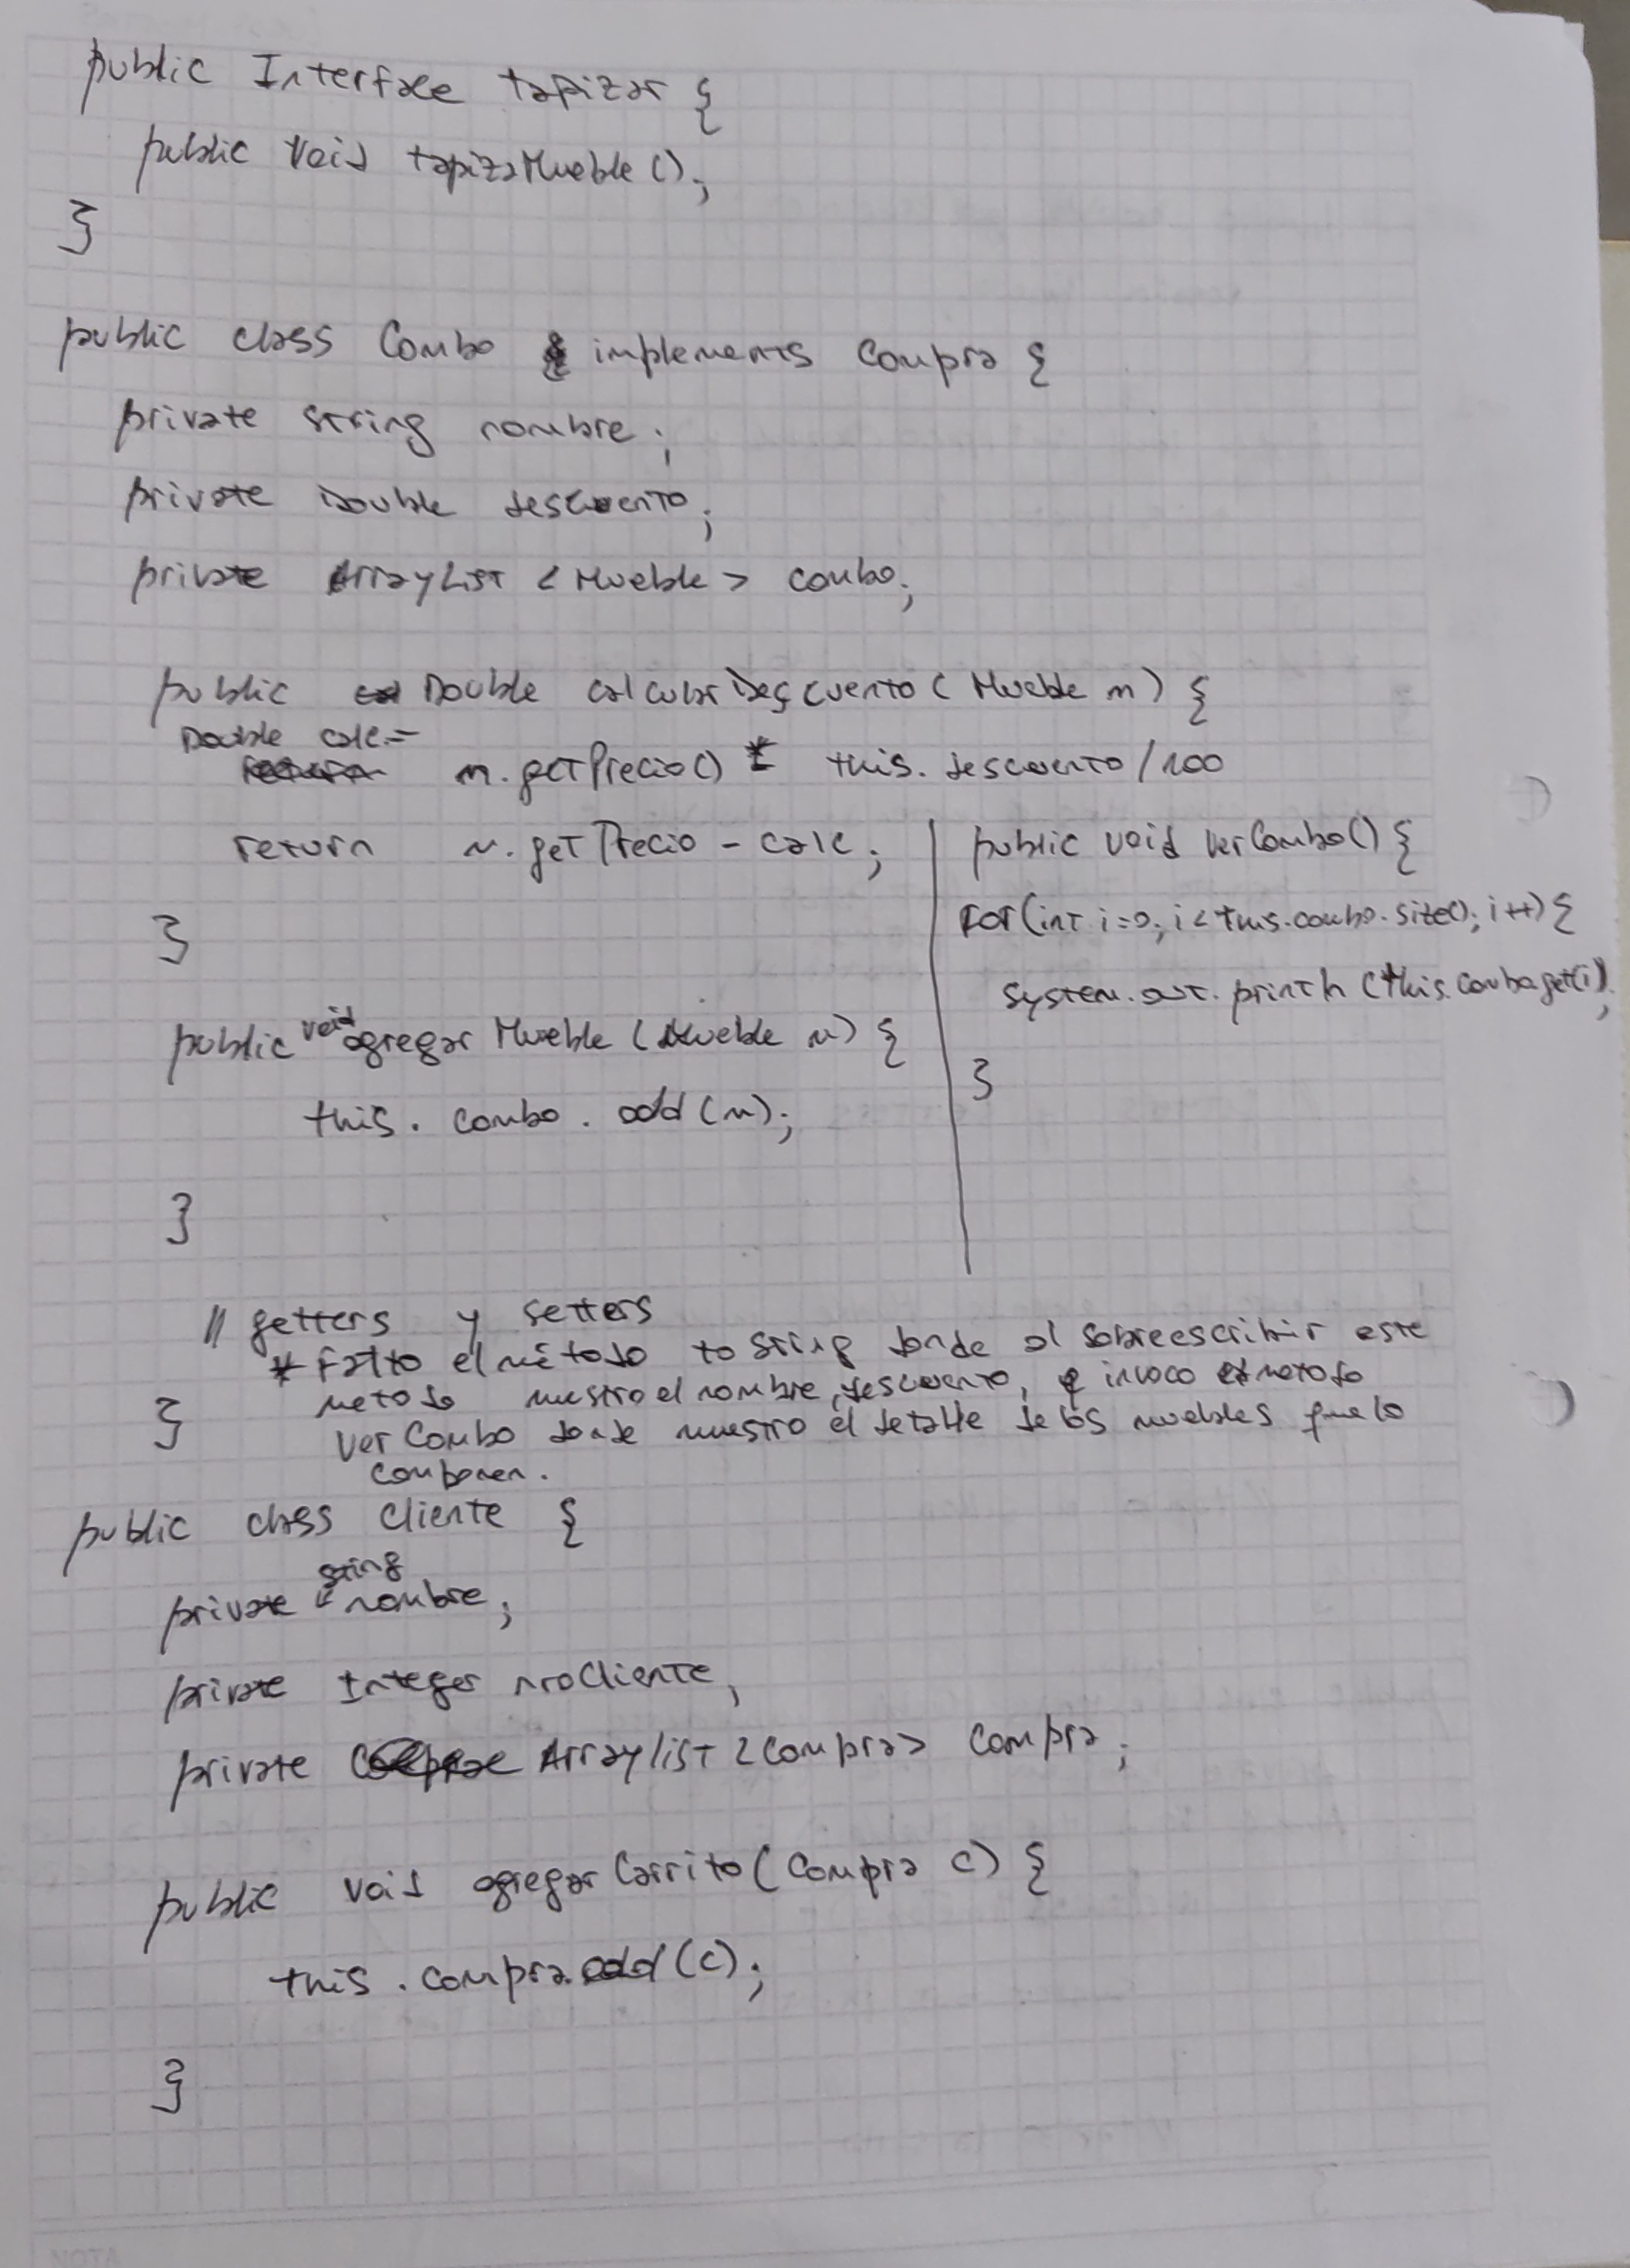 public Interface tapizar {
public void tapizaMueble();
}
public class Combo implements Compra {
private string nombre;
private Double descuento;
private ArrayList <Mueble> combo;
public Double calcularDescuento(Mueble m) {
Double calc =
return m.getPrecio() * this.descuento/100
return m.getPrecio - calc;
}
public void agregarMueble (Mueble m) {
this.combo.add(m);
}
public void verCombo() {
for(int i=0; i<this.combo.size(); i++) {
system.out.println (this.combo.get(i));
}
// getters y setters
* Falto el método to string donde al sobreescribir este
metodo muestro el nombre, descuento, e invoco metodo
} ver Combo donde muestro el detalle de los muebles que lo
componen.
public class Cliente {
string
private nombre;
private Integer nroCliente,
private ArrayList <Compra> Compra;
public void agregarCarrito (Compra c) {
this.compra.add(c);
}